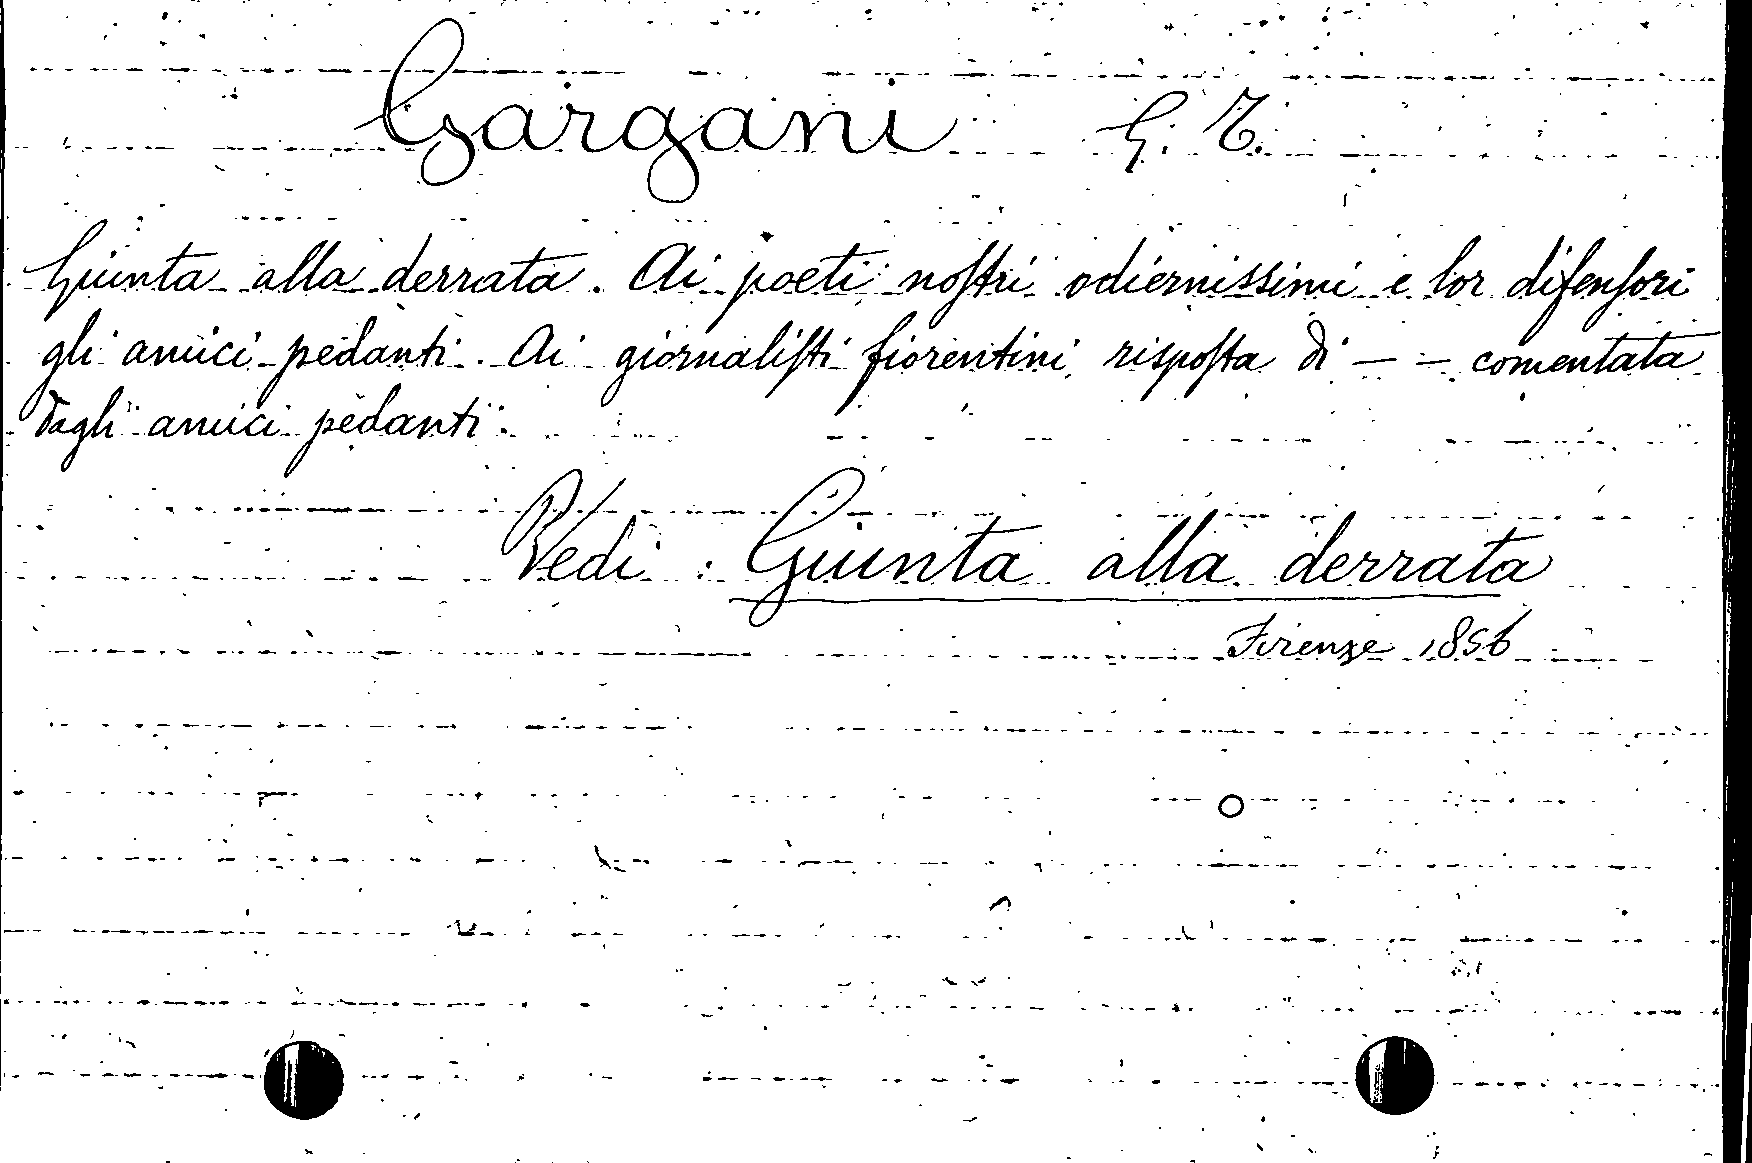 Gargani G. T.
Giunta alla derrata. Ai poeti noſtri odiernissimi e lor difenſori
gli amici pedanti. Ai giornaliſti fiorentini, risposta di — — comentata
dagli amici pedanti.
Vedi : Giunta alla derrata
Firenze 1856